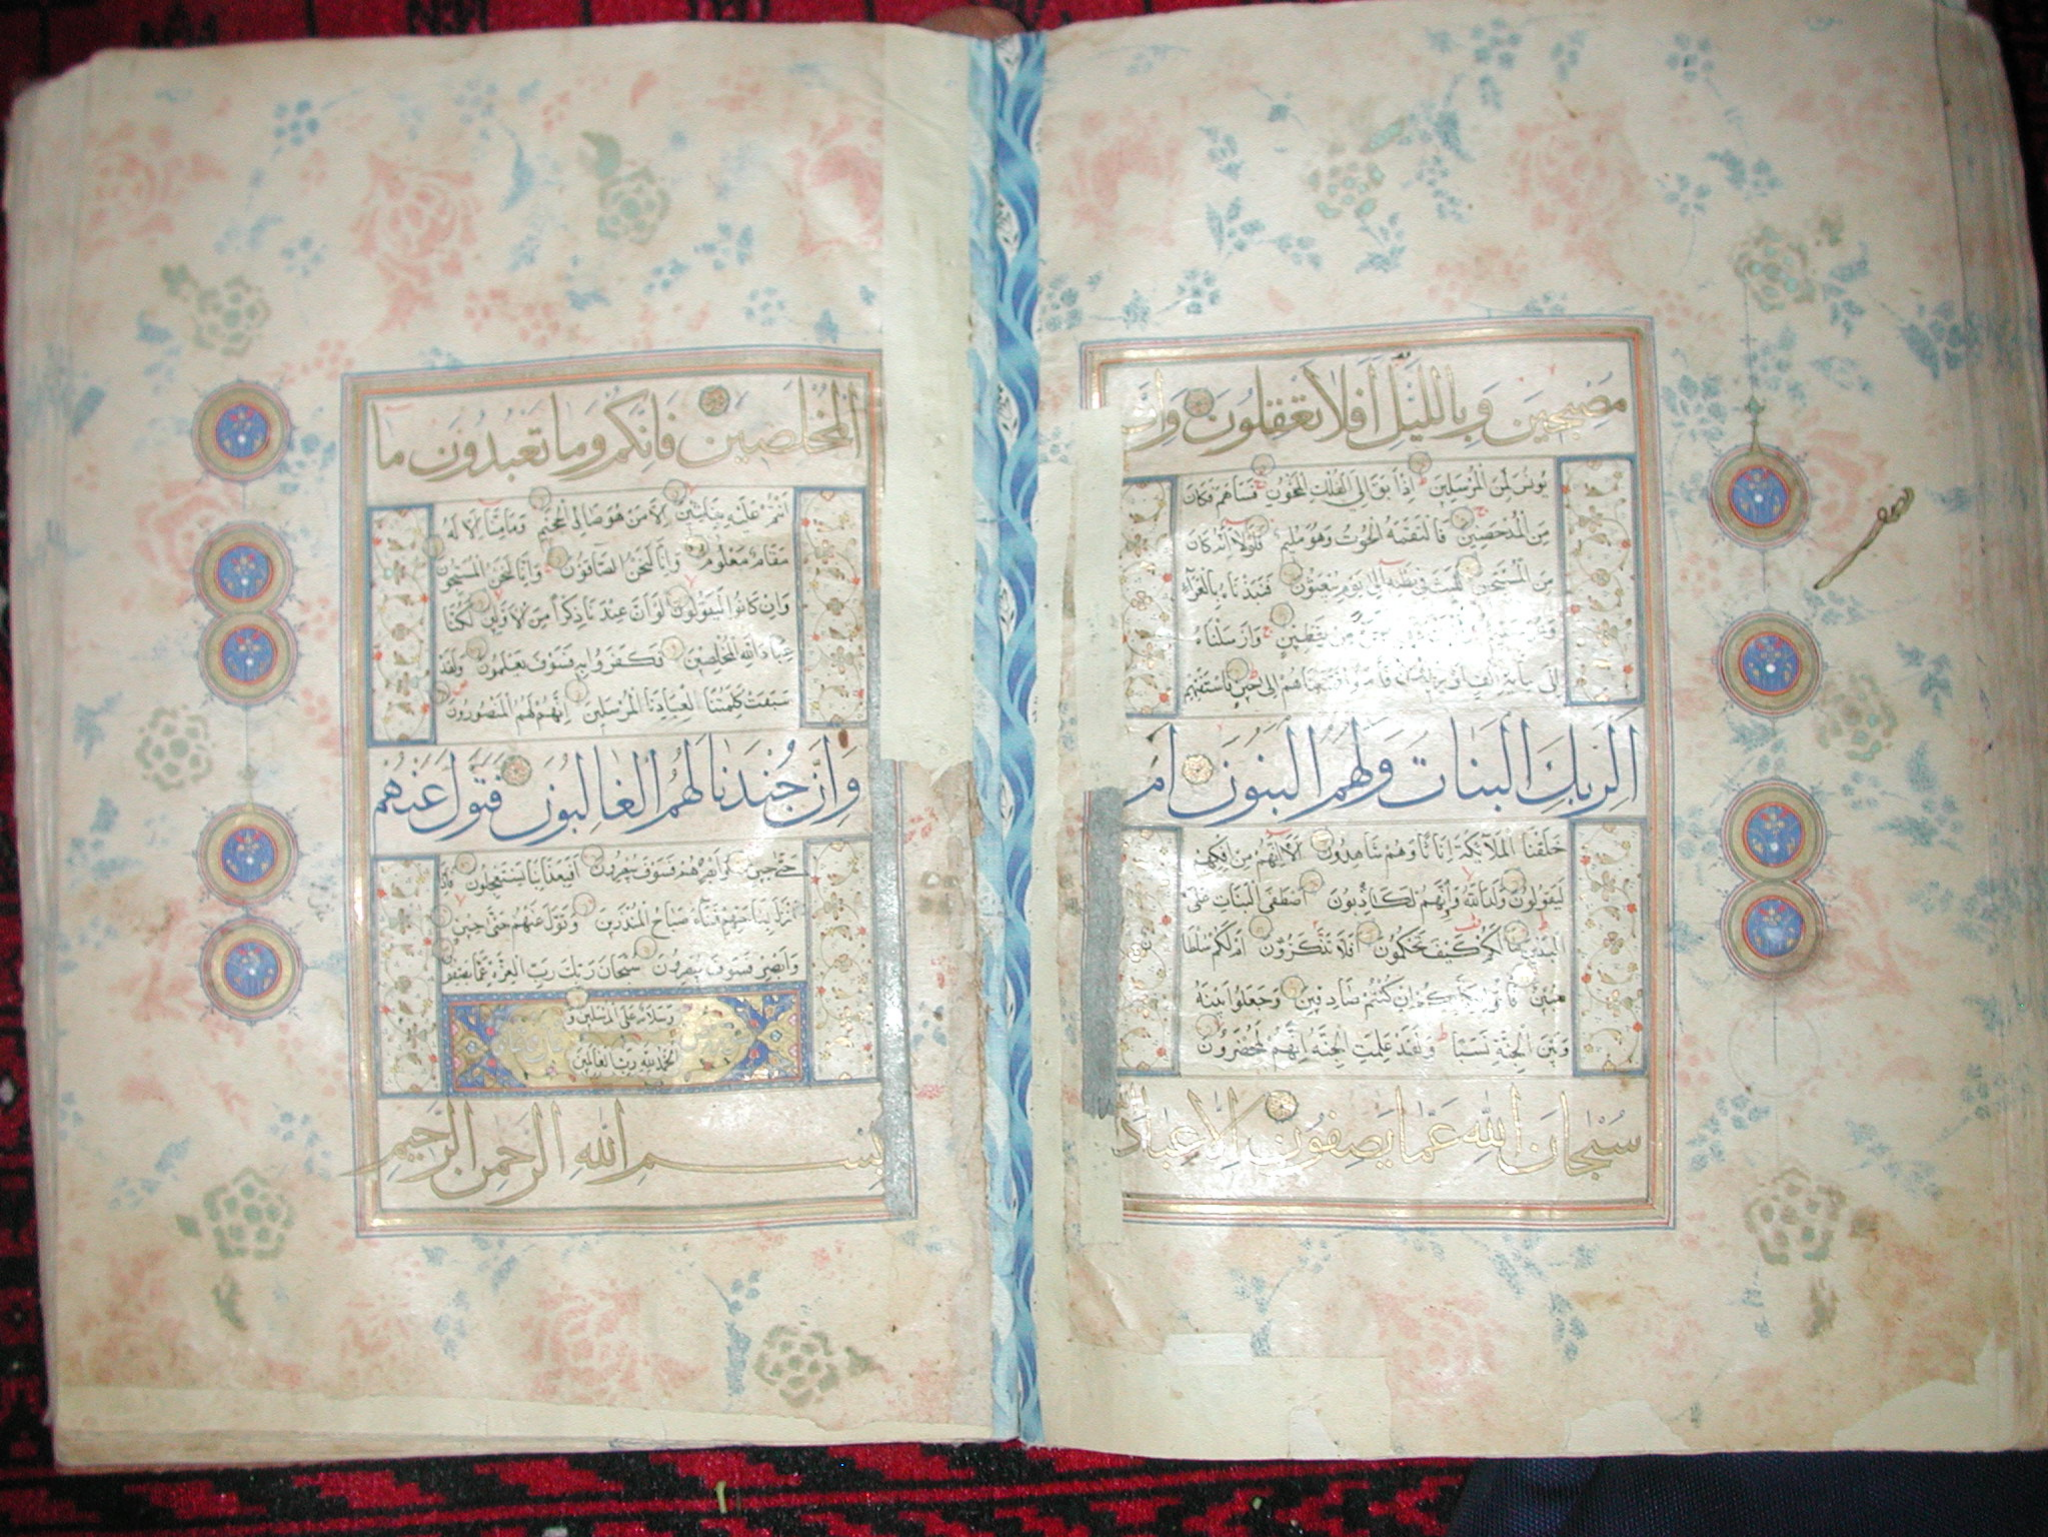 مصبحين وبالليل افلا تعقلون وان
يونس لمن المرسلين اذ ابق الى الفلك المشحون فساهم فكان
من المدحضين فالتقمه الحوت وهو مليم فلولا انه كان
من المسبحين للبث فى بطنه الى يوم يبعثون فنبذناه بالعراء
من يقطين وارسلناه
الى مائة الف او يزيدون فامنوا فمتعناهم الى حين فاستفتهم
الربك البنات ولهم البنون ام
خلقنا الملائكة اناثا وهم شاهدون الا انهم من افكهم
ليقولون ولد الله وانهم لكاذبون اصطفى البنات على
البنين مالكم كيف تحكمون افلا تذكرون ام لكم سلطا
مبين فأتوا بكتابكم ان كنتم صادقين وجعلوا بينه
وبين الجنة نسبا ولقد علمت الجنة انهم لمحضرون
سبحان الله عما يصفون الا عباد
المخلصين فانكم وما تعبدون ما
انتم عليه بفاتنين الا من هو صالى الجحيم وما منا الا له
مقام معلوم وانا لنحن الصافون وانا لنحن المسبحون
وان كانوا ليقولون لو ان عندنا ذكرا من الاولين لكنا
عباد الله المخلصين فكفروا به فسوف يعلمون ولقد
سبقت كلمتنا لعبادنا المرسلين انهم لهم المنصورون
وان جندنا لهم الغالبون فتول عنهم
حتى حين وابصرهم فسوف يبصرون افبعذابنا يستعجلون فاذا
نزل بساحتهم فساء صباح المنذرين وتول عنهم حتى حين
وابصر فسوف يبصرون سبحان ربك رب العزة عما يصفون
وسلام على المرسلين و
الحمد لله رب العالمين
بسم الله الرحمن الرحيم